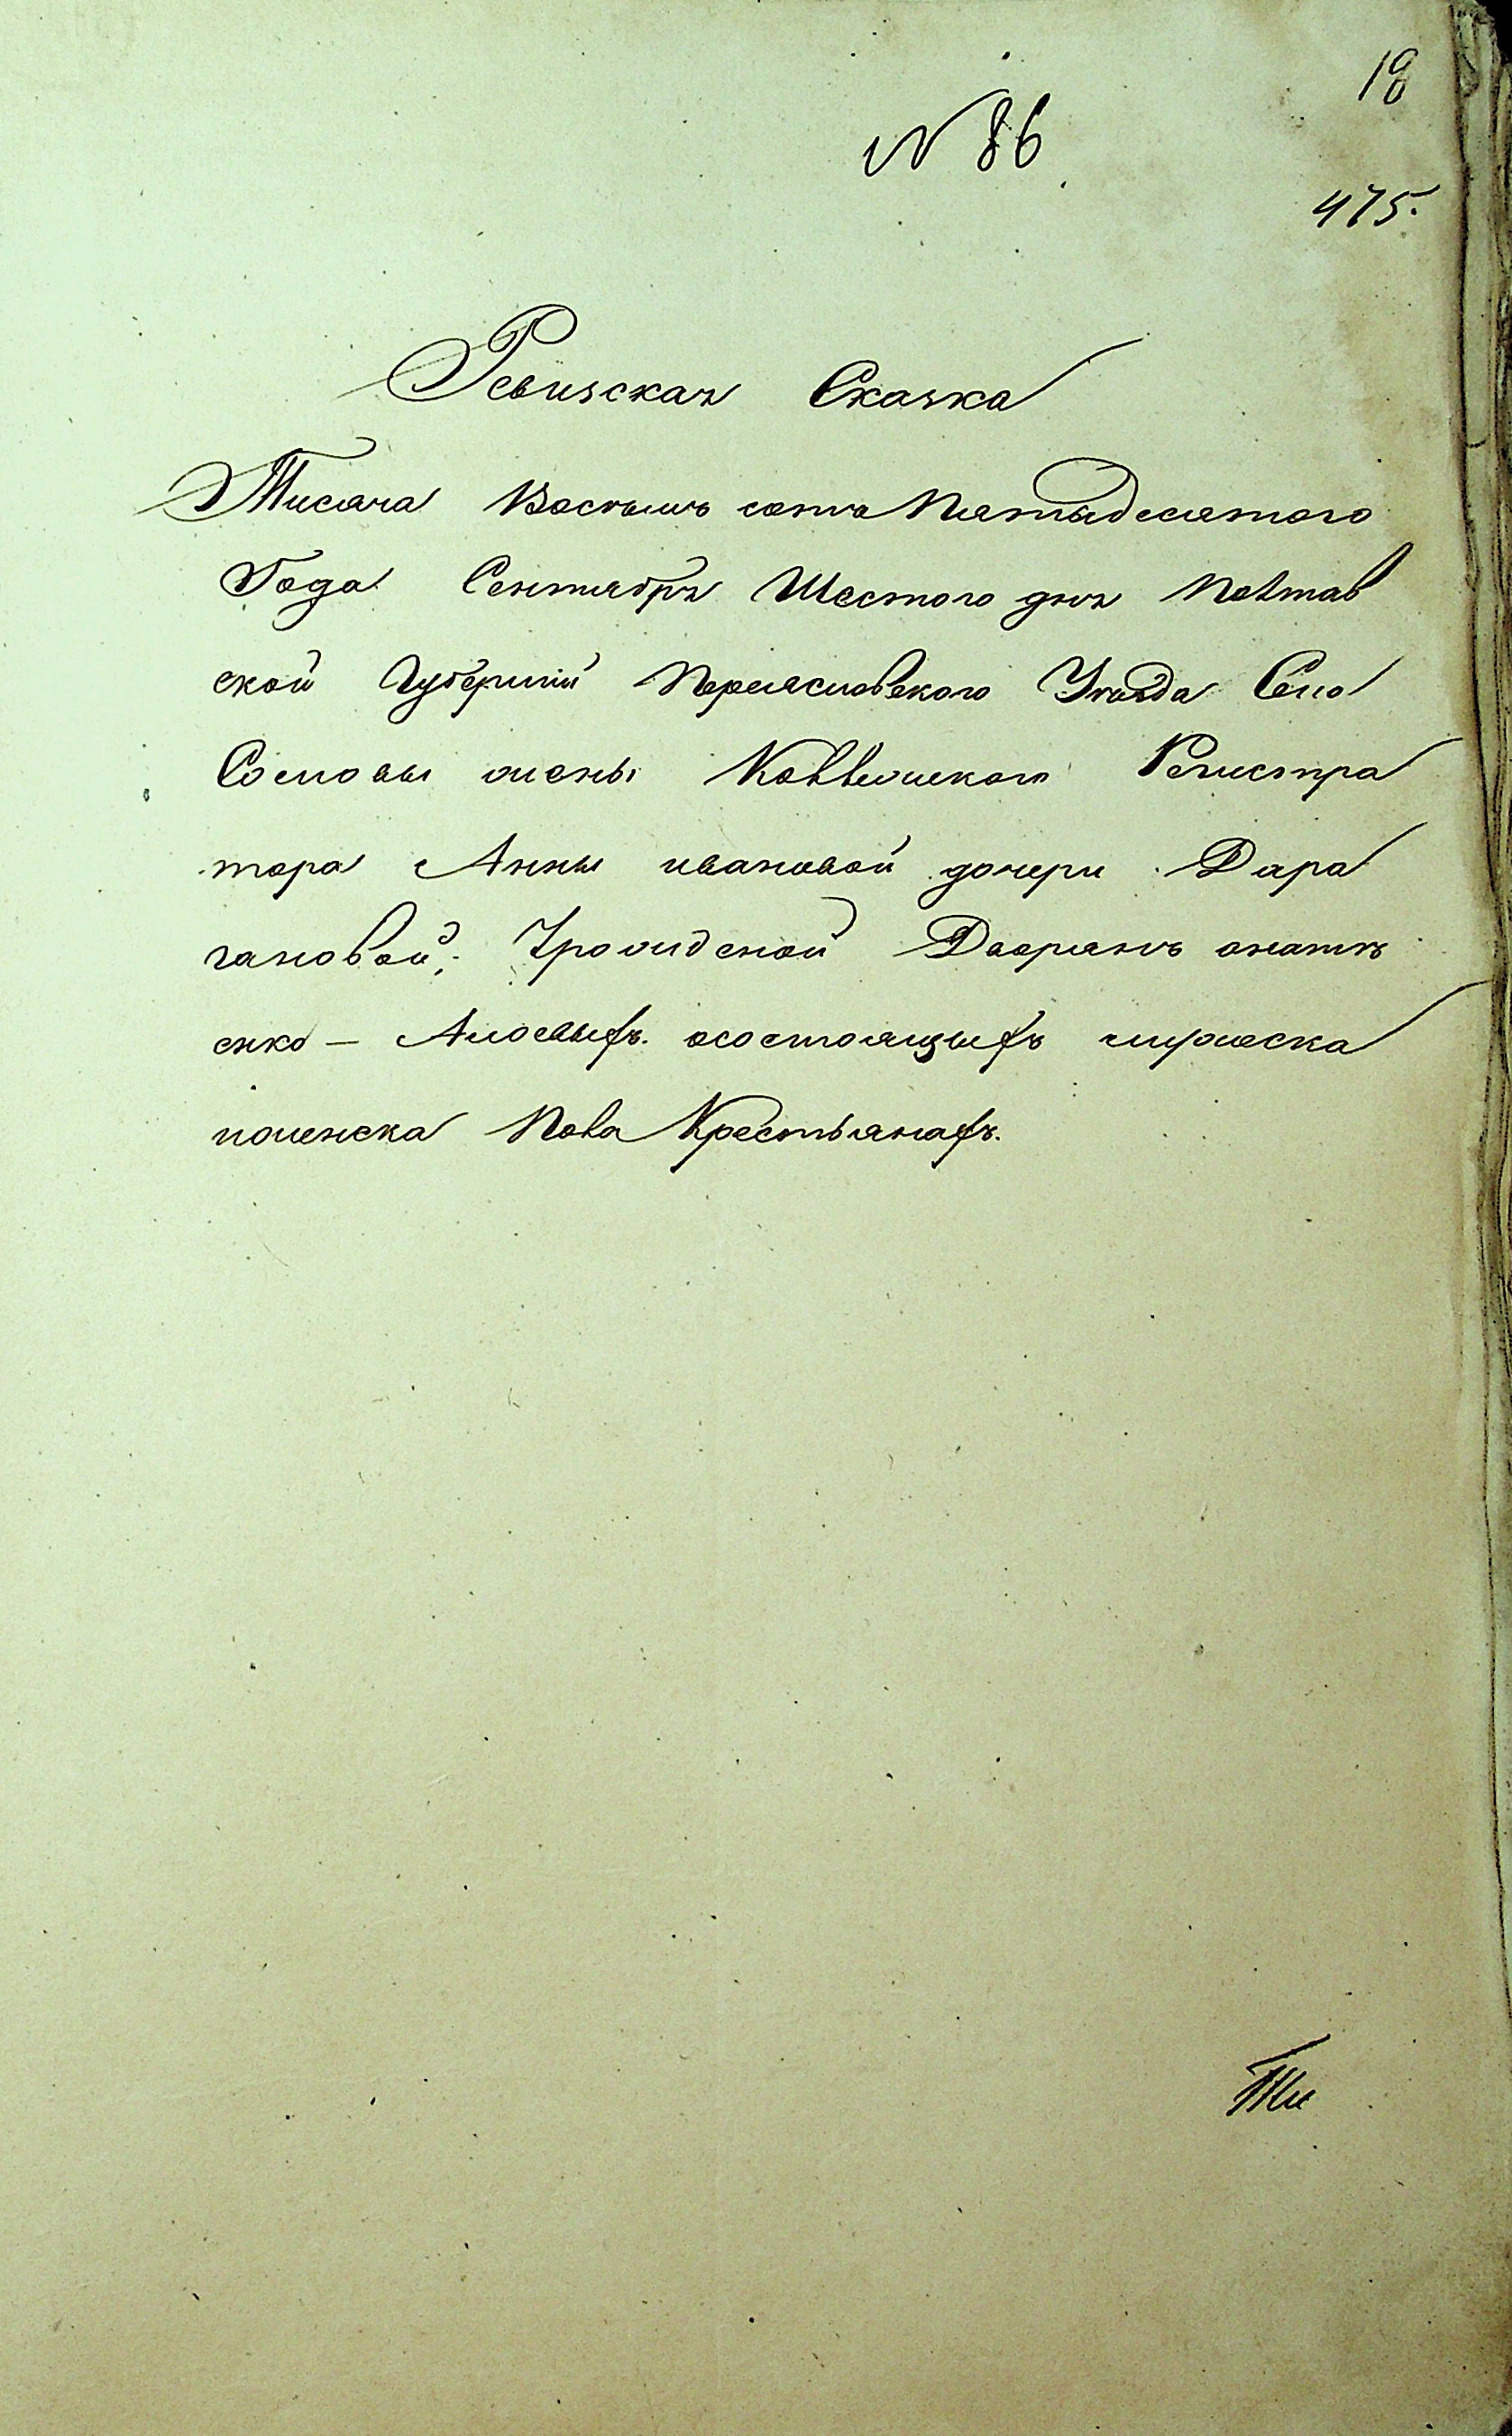 18
N 86
475.
Ревизская Сказка
Тисяча Восѣмь сотъ Пятыдесятого
Года Сентября Шестого дня Полтав
ской Губернии Переясловского Уезда Село
Сосновы жены Коллежского Регистра
тора Анны ивановой дочери Дара
гановой, Урожденой Дворянъ
енко — осостоящыхъ мужеска
иженска Пола Крестьянахъ.
Ти